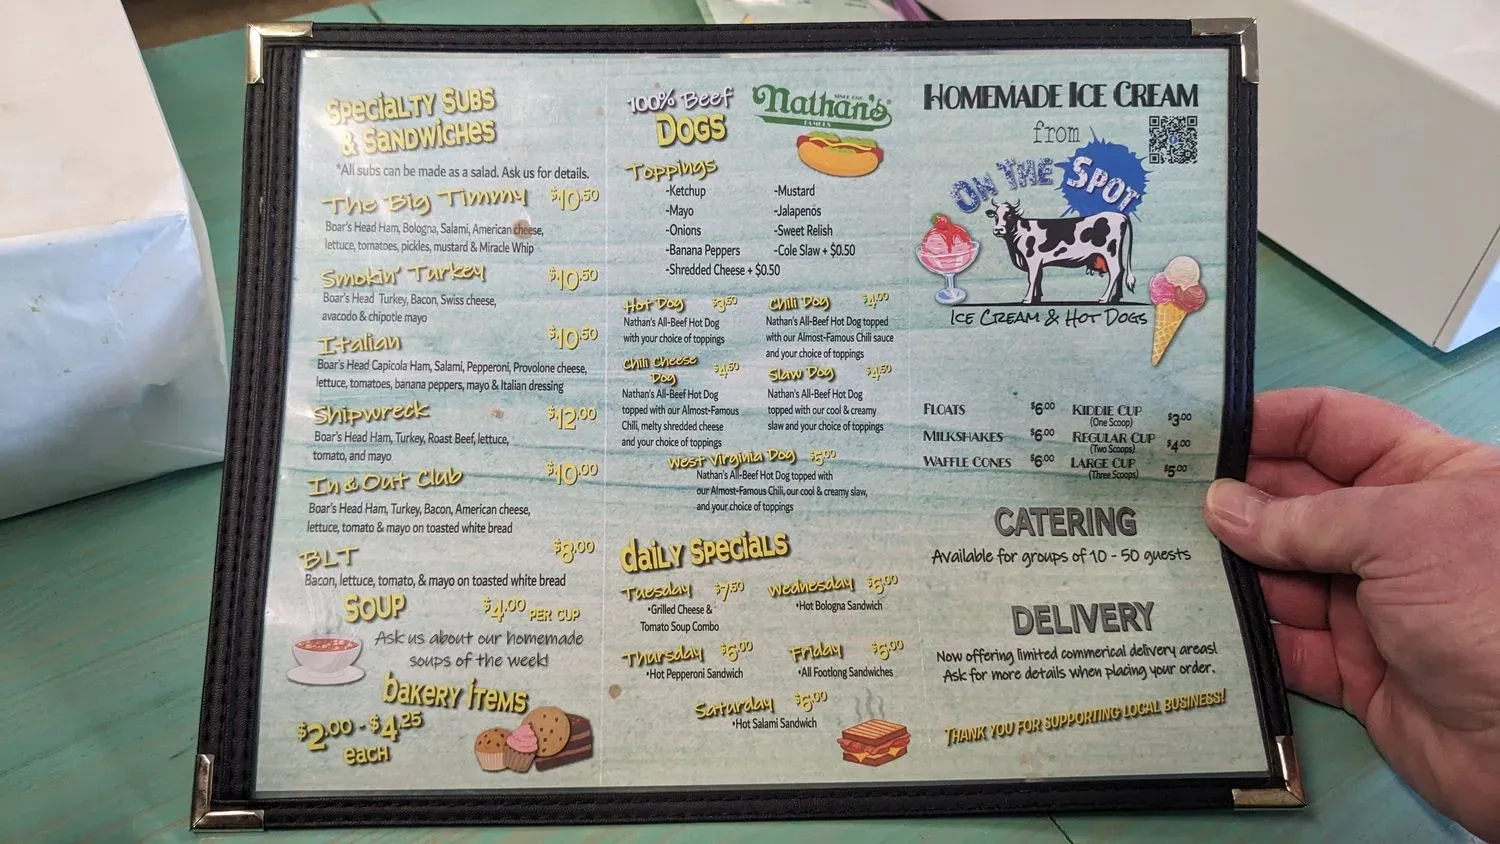 Specialty Subs
& Sandwiches
*All subs can be made as a salad. Ask us for details.
The Big Timmy $10.50
Boar's Head Ham, Bologna, Salami, American cheese,
lettuce, tomatoes, pickles, mustard & Miracle Whip
Smokin' Turkey $10.50
Boar's Head Turkey, Bacon, Swiss cheese,
avacodo & chipotle mayo
Italian $10.50
Boar's Head Capicola Ham, Salami, Pepperoni, Provolone cheese,
lettuce, tomatoes, banana peppers, mayo & Italian dressing
Shipwreck $12.00
Boar's Head Ham, Turkey, Roast Beef, lettuce,
tomato, and mayo
In & Out Club $10.00
Boar's Head Ham, Turkey, Bacon, American cheese,
lettuce, tomato & mayo on toasted white bread
BLT $8.00
Bacon, lettuce, tomato, & mayo on toasted white bread
SOUP $4.00 PER CUP
Ask us about our homemade
soups of the week!
bakery items
$2.00 - $4.25
each
100% Beef
DOGS
SINCE 1916
Nathan's
FAMOUS
Toppings
-Ketchup
-Mayo
-Onions
-Banana Peppers
-Shredded Cheese + $0.50
-Mustard
-Jalapenos
-Sweet Relish
-Cole Slaw + $0.50
Hot Dog $3.50
Nathan's All-Beef Hot Dog
with your choice of toppings
Chili Dog $4.00
Nathan's All-Beef Hot Dog topped
with our Almost-Famous Chili sauce
and your choice of toppings
Chili Cheese
Dog $4.50
Nathan's All-Beef Hot Dog
topped with our Almost-Famous
Chili, melty shredded cheese
and your choice of toppings
Slaw Dog $4.50
Nathan's All-Beef Hot Dog
topped with our cool & creamy
slaw and your choice of toppings
West Virginia Dog $5.00
Nathan's All-Beef Hot Dog topped with
our Almost-Famous Chili, our cool & creamy slaw,
and your choice of toppings
daily specials
Tuesday $7.50
•Grilled Cheese &
Tomato Soup Combo
Wednesday $6.00
•Hot Bologna Sandwich
Thursday $6.00
•Hot Pepperoni Sandwich
Friday $6.00
•All Footlong Sandwiches
Saturday $6.00
•Hot Salami Sandwich
HOMEMADE ICE CREAM
from
ON THE SPOT
ICE CREAM & HOT DOGS
FLOATS $6.00
MILKSHAKES $6.00
WAFFLE CONES $6.00
KIDDIE CUP $3.00
(One Scoop)
REGULAR CUP $4.00
(Two Scoops)
LARGE CUP $5.00
(Three Scoops)
CATERING
Available for groups of 10 - 50 guests
DELIVERY
Now offering limited commerical delivery areas!
Ask for more details when placing your order.
THANK YOU FOR SUPPORTING LOCAL BUSINESS!